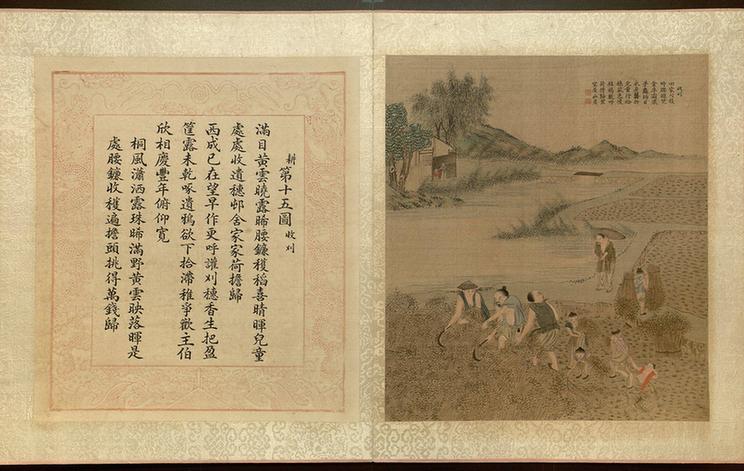 收刈
耕 第十五圖 收刈
滿目黃雲曉露晞腰鐮穫稻喜晴暉兒童
處處收遺穗邨舍家家荷擔歸
西成已在望早作更呼讙刈穗香生把盈
筐露未乾啄遺鴉欲下拾滯稚爭歡主伯
欣相慶豐年俯仰寬
桐風瀟洒露珠晞滿野黃雲映落暉是
處腰鐮收穫遍擔頭挑得萬錢歸